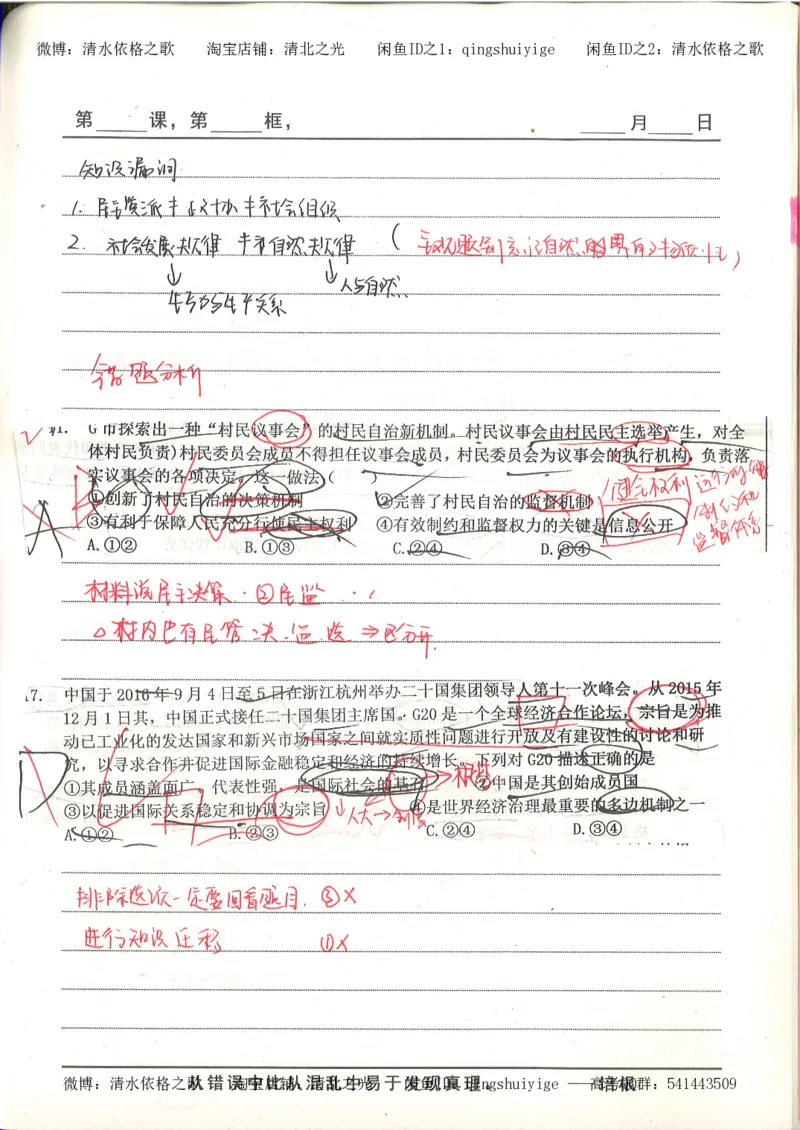 微博：清水依格之歌 淘宝店铺：清北之光 闲鱼ID之1：qingshuiyige 闲鱼ID之2：清水依格之歌
第 课，第 框， 月 日
知识漏洞
1. 民主党派≠政协≠社会组织
2. 社会发展规律 ≠ 自然规律
人与自然
生与生关系
错题分析
G市探索出一种“村民议事会”的村民自治新机制。村民议事会由村民民主选举产生，对全
体村民负责)村民委员会成员不得担任议事会成员，村民委员会为议事会的执行机构，负责落
实议事会的各项决定。这一做法（ ）
①创新了村民自治的决策机制 ②完善了村民自治的监督机制
③有利于保障人民充分行使民主权利 ④有效制约和监督权力的关键是信息公开
A.①② B.①③ C.②④ D.③④
健全权利运行的制
约和
监督体系
材料说民主决策.②民监
△村内也有民管、决、监、选⇒已分开.
17. 中国于2016年9月4日至5日在浙江杭州举办二十国集团领导人第十一次峰会。从2015年
12月1日其，中国正式接任二十国集团主席国。G20是一个全球经济合作论坛，宗旨是为推
动已工业化的发达国家和新兴市场国家之间就实质性问题进行开放及有建设性的讨论和研
究，以寻求合作并促进国际金融稳定和经济的持续增长。下列对G20描述正确的是
①其成员涵盖面广，代表性强，是国际社会的基石 ②中国是其创始成员国
③以促进国际关系稳定和协调为宗旨 ④是世界经济治理最重要的多边机制之一
A.①② B.②③ C.②④ D.③④
D
排除选项一定要回看题目. ③×
进行知识迁移 ①×
微博：清水依格之歌 淘宝店铺：清北之光 闲鱼ID：qingshuiyige 高考QQ群：541443509
从错误中比从混乱中易于发现真理。 ——培根